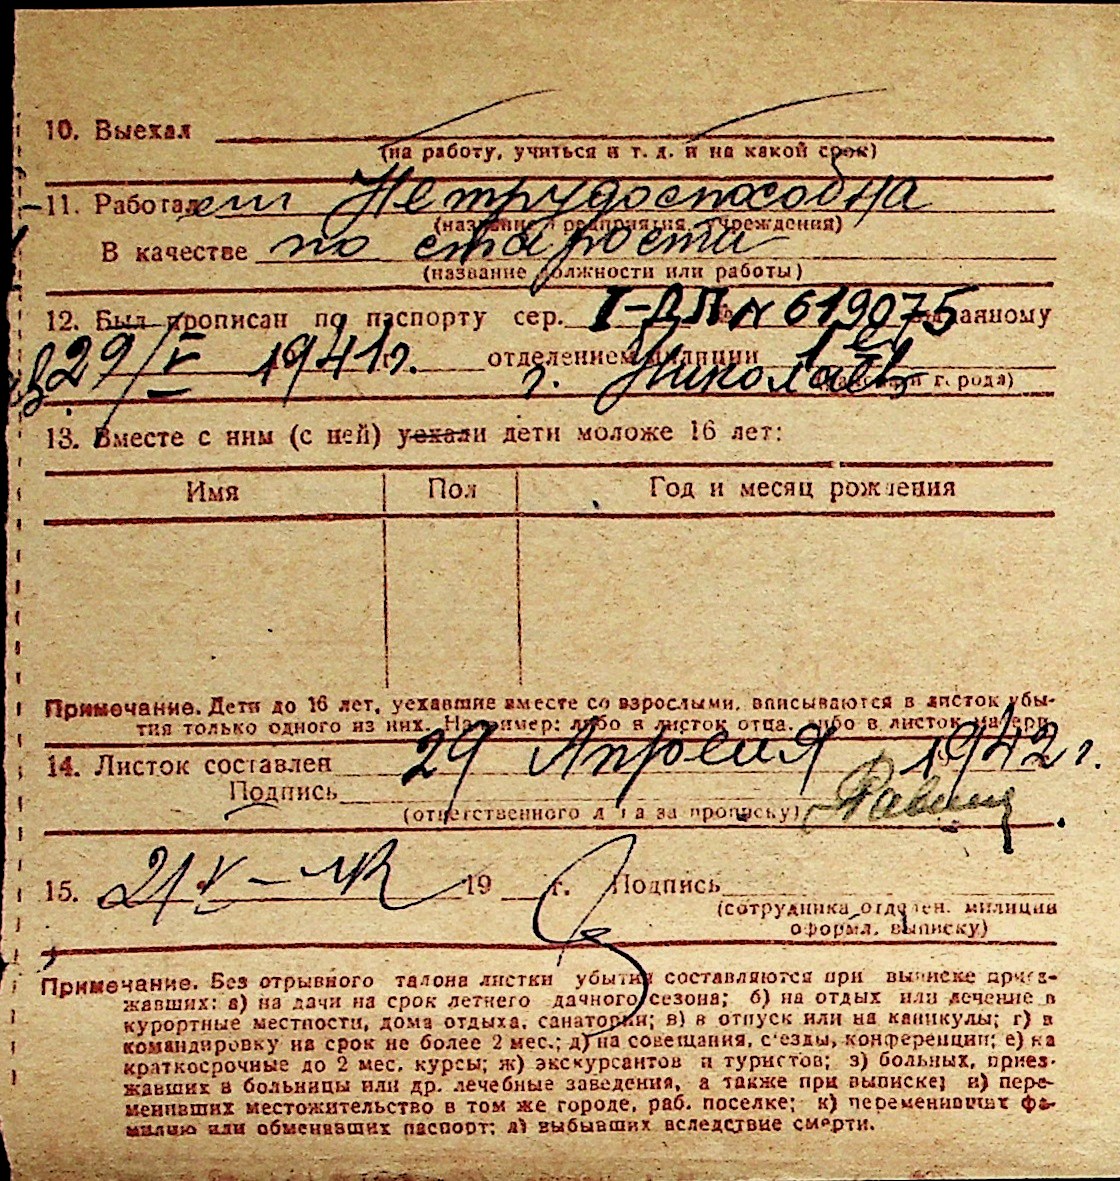 10. Выехал
(на работу, учиться и т. д. и на какой срок)
11. Работал Нетрудоспособна
(название предприятия, учреждения)
В качестве по старости
(название должности или работы)
12. Был прописан по паспорту сер. I-ДП № 619075 выданному
29/V 1941 г. отделением милиции 1ое
г. Николаев
(название города)
13. Вместе с ним (с ней) уехали дети моложе 16 лет:
Имя Пол Год и месяц рождения
Примечание. Дети до 16 лет, уехавшие вместе со взрослыми, вписываются в листок убы-
тия только одного из них. Например: либо в листок отца, либо в листок матери.
14. Листок составлен 29 Апреля 1942 г.
Подпись
(ответственного лица за прописку)
15. 21/V-42 19 г. Подпись
(сотрудника отделен. милиции
оформл. выписку)
Примечание. Без отрывного талона листки убытия составляются при выписке приез-
жавших: а) на дачи на срок летнего дачного сезона; б) на отдых или лечение в
курортные местности, дома отдыха, санатории; в) в отпуск или на каникулы; г) в
командировку на срок не более 2 мес.; д) на совещания, с'езды, конференции; е) на
краткосрочные до 2 мес. курсы; ж) экскурсантов и туристов; з) больных, приез-
жавших в больницы или др. лечебные заведения, а также при выписке; и) пере-
менивших местожительство в том же городе, раб. поселке; к) переменивших фа-
милию или обменявших паспорт; л) выбывших вследствие смерти.